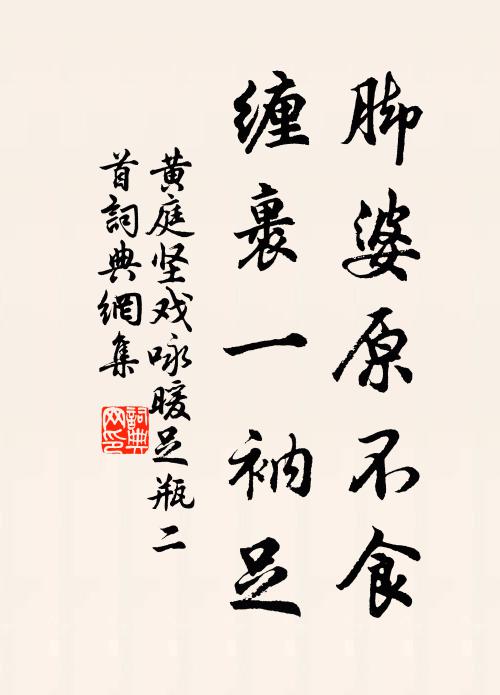 脚婆原不食
缠裹一衲足
黄庭坚戏咏暖足瓶二
首詞典網集
詞典
网印